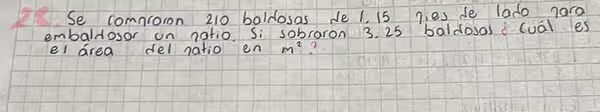 28. Se compraron 210 baldosas de 1.15 pies de lado para
embaldosar un patio. Si sobraron 3.25 baldosas ¿ cuál es
el área del patio en m² ?